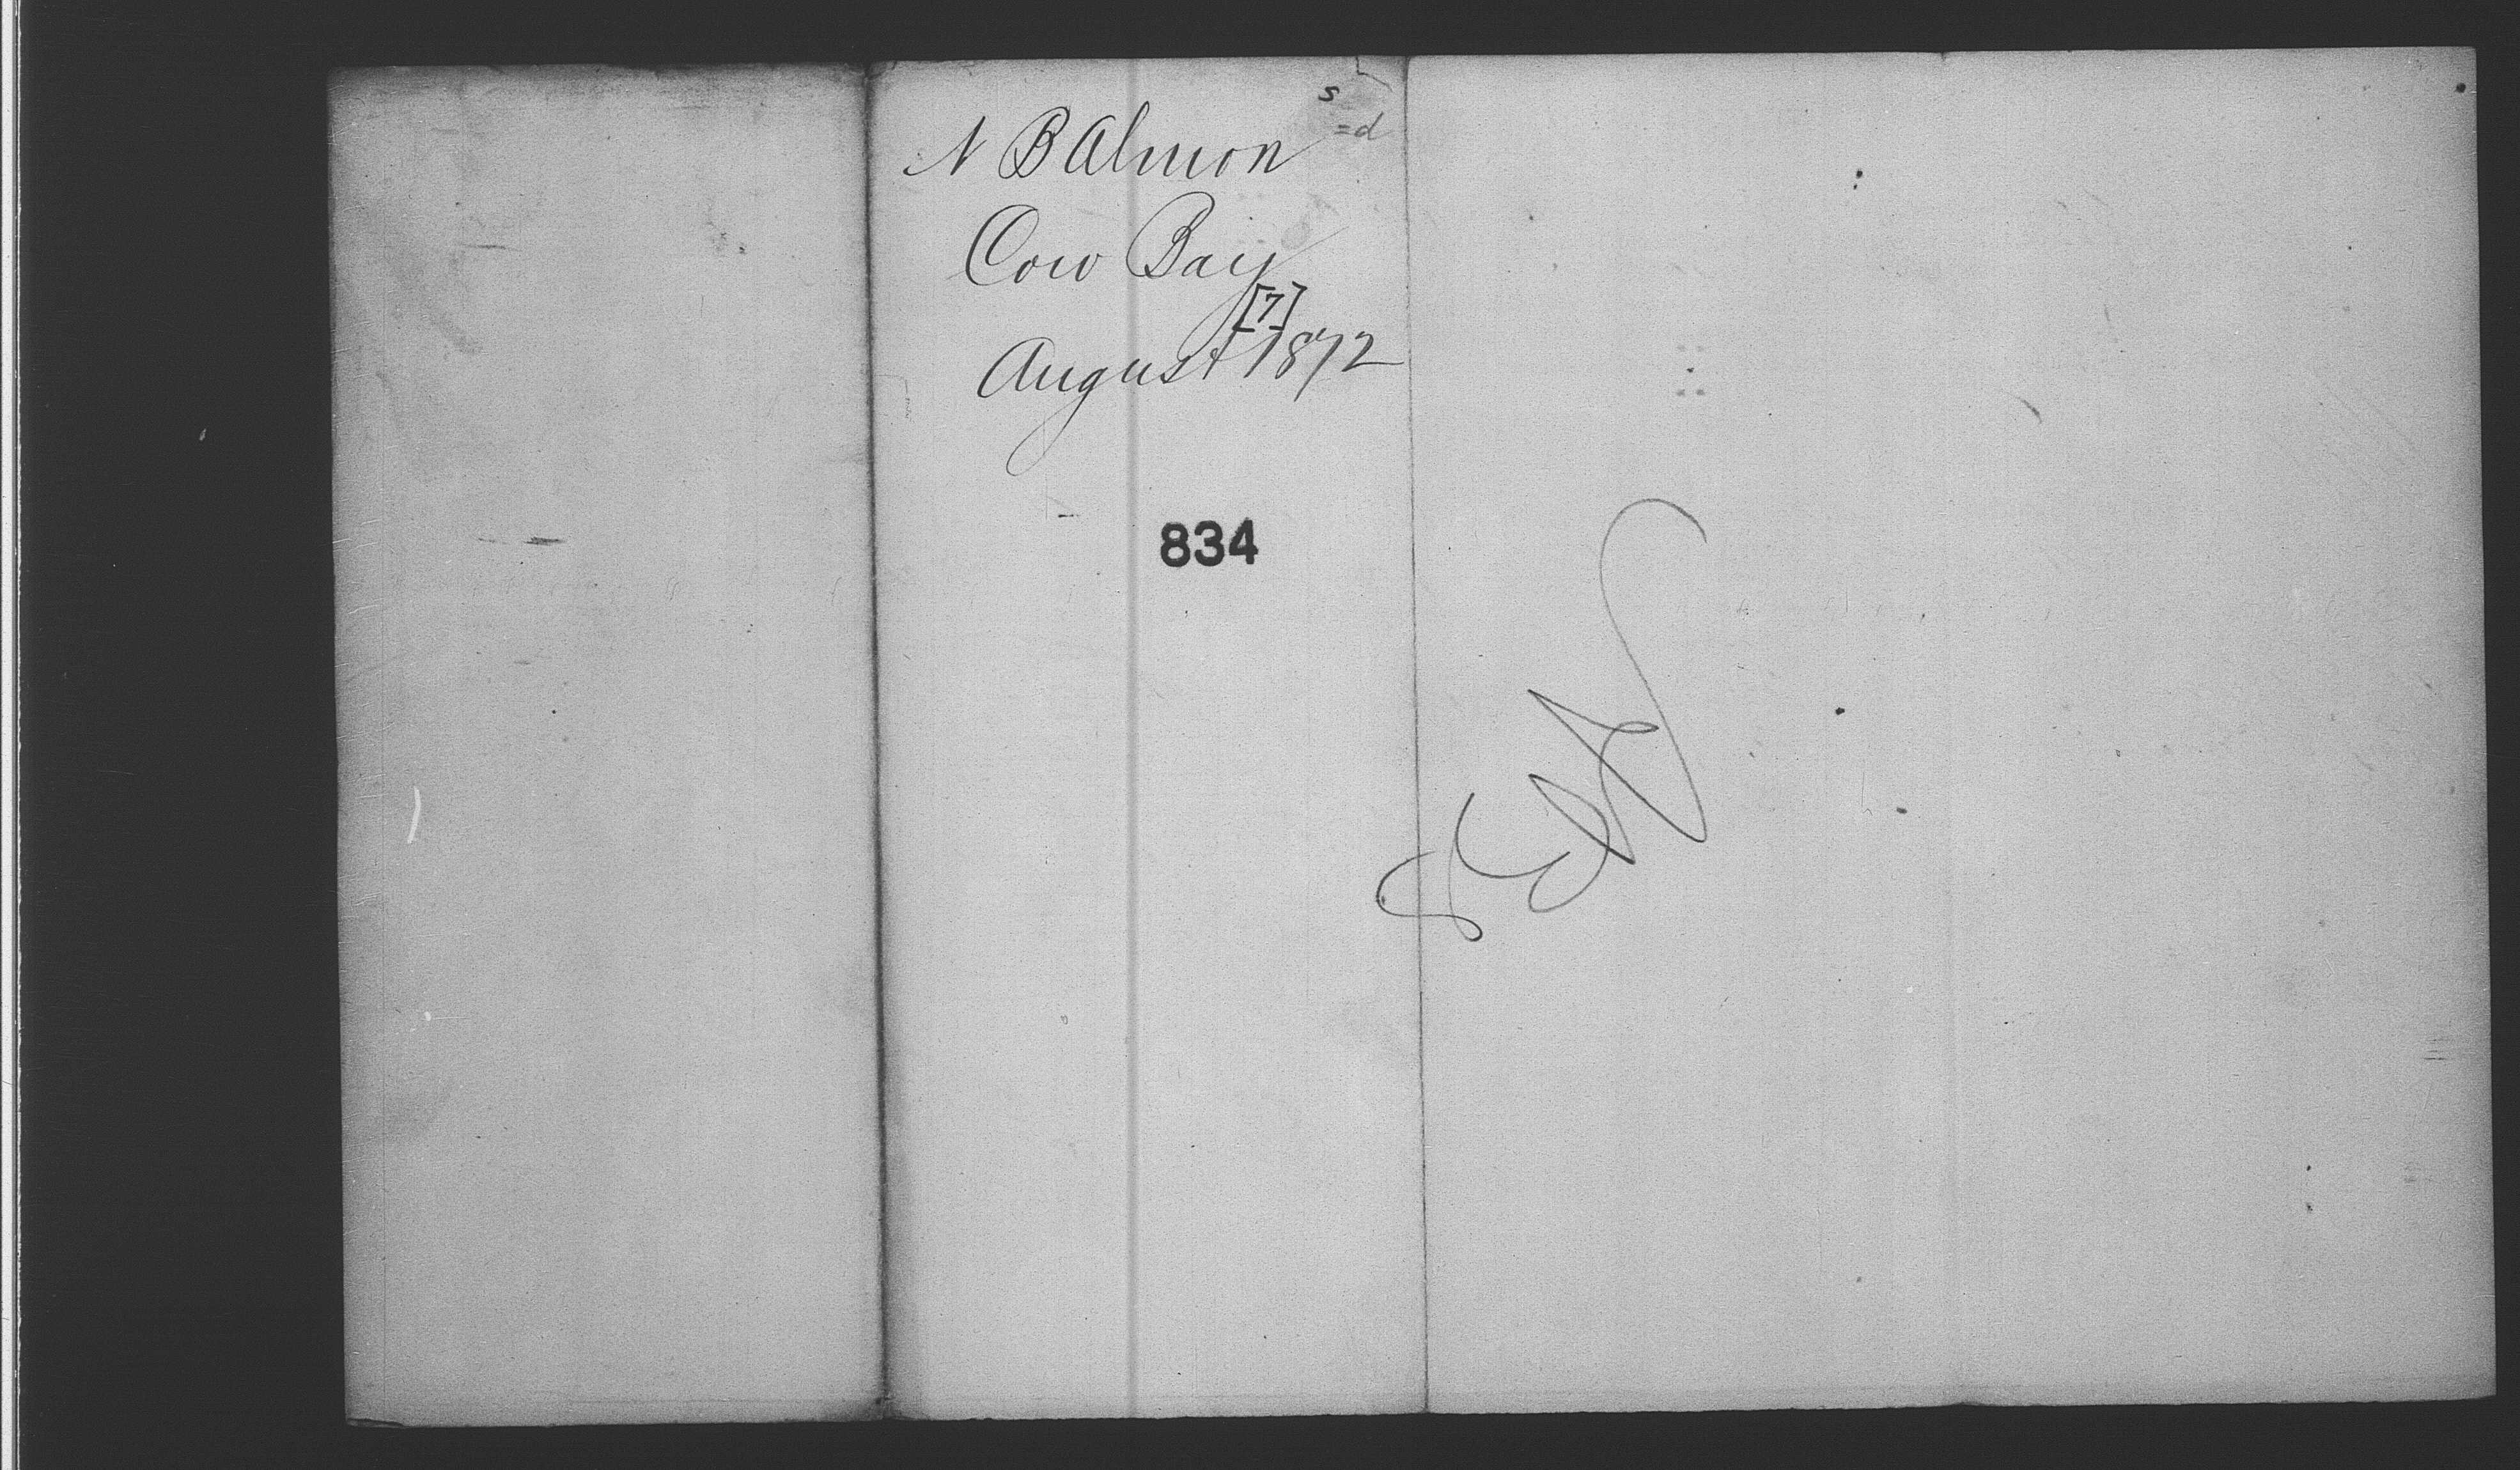 s
=d
N B Almon
Cow Bay
[7]
August 1872
834